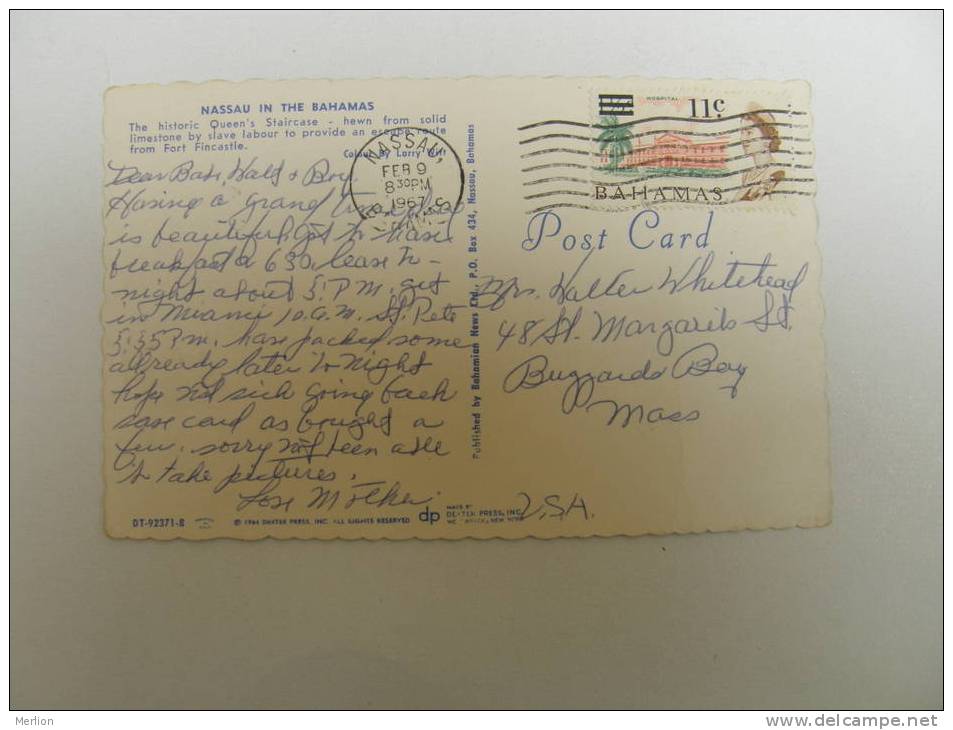 NASSAU IN THE BAHAMAS
The historic Queen's Staircase - hewn from solid
limestone by slave labour to provide an escape route
from Fort Fincastle.
Colour by Larry Witt
Dear Babe, Walt & Boy
Having a grand
is beautiful, got to have
breakfast a 630, leave to-
night about 5: P.M. get
in Miami 10 a.m. St. Pete
5:35 P.m. have packed some
already later to night
hope not sick going back
save card as bought a
few. sorry not been able
to take pictures.
Love Mother
DT-92371-B
© 1964 DEXTER PRESS, INC. ALL RIGHTS RESERVED
dp
MADE BY
DEXTER PRESS, INC.
NEW YORK
Published by Bahamian News Ltd., P.O. Box 434, Nassau, Bahamas
NASSAU,
FEB 9
8 30PM
1967
HOSPITAL
11c
BAHAMAS
Post Card
Mrs. Walter Whitehead
48 St. Margarits St.
Buzzards Bay
Mass
U.S.A.
Merlion
www.delcampe.net